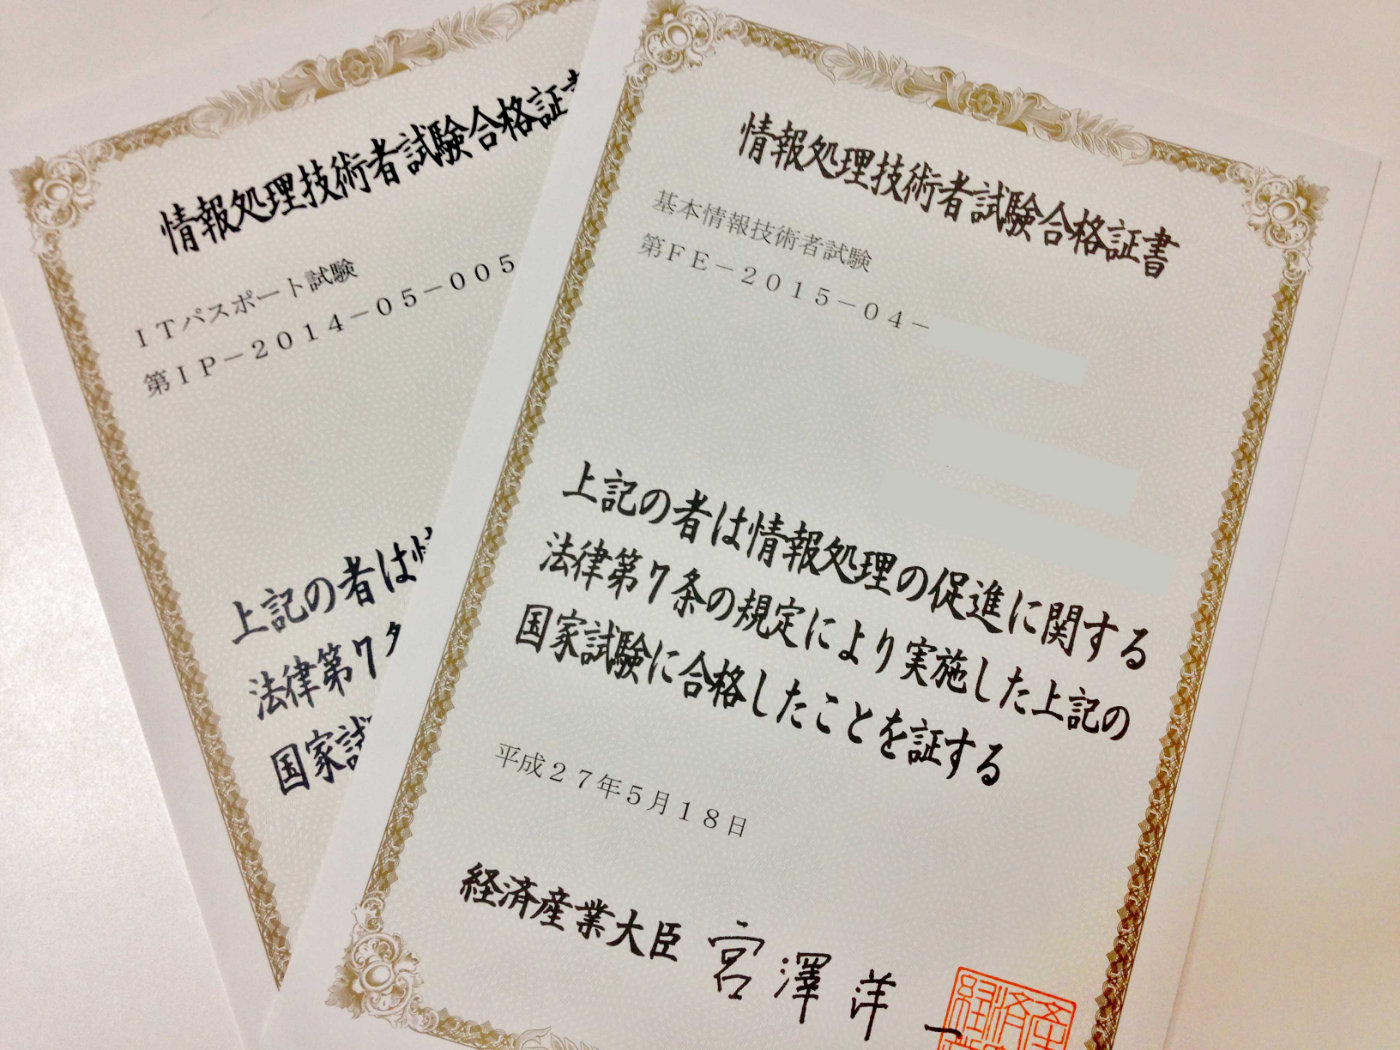 情報処理技術者試験合格証
ITパスポート試験
第IP-2014-05-005
上記の者は情
法律第7
国家試
情報処理技術者試験合格証書
基本情報技術者試験
第FE-2015-04-
上記の者は情報処理の促進に関する
法律第7条の規定により実施した上記の
国家試験に合格したことを証する
平成27年5月18日
経済産業大臣 宮澤洋一
経済産